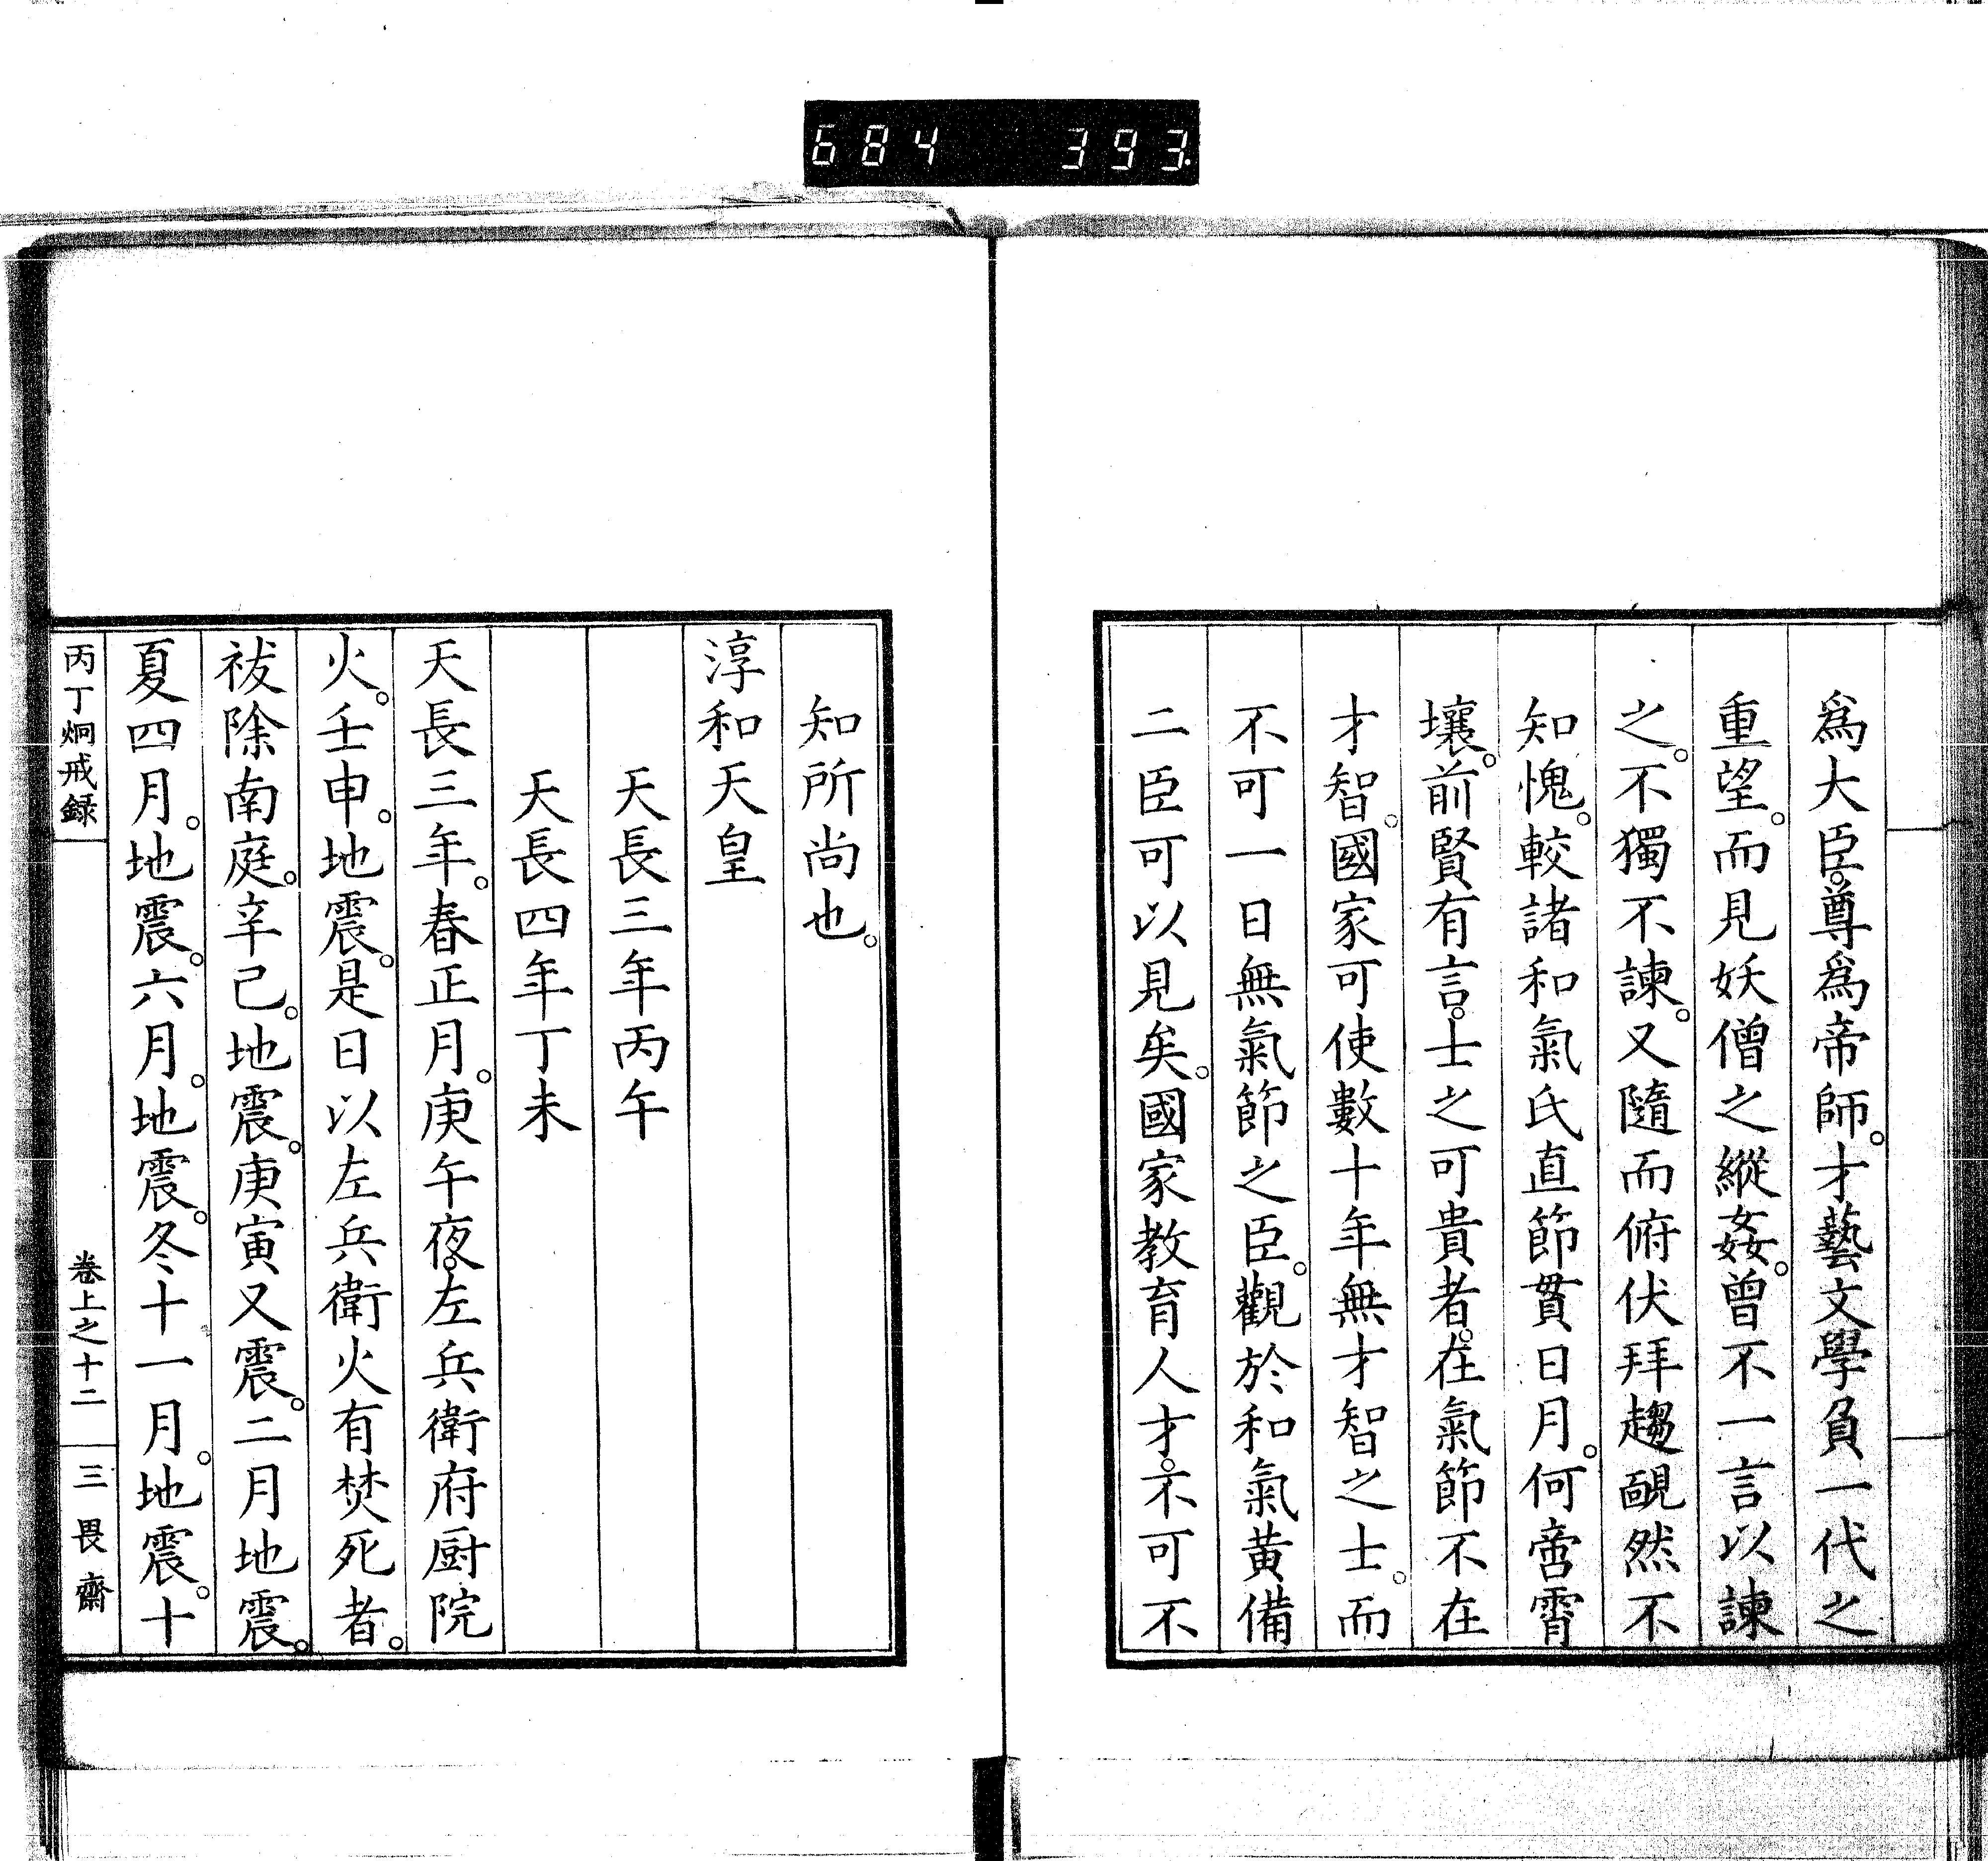 684 393
爲大臣。尊爲帝師。才藝文學負一代之
重望。而見妖僧之縱姦。曾不一言以諫
之。不獨不諫。又隨而俯伏拜趨靦然不
知愧。較諸和氣氏直節貫日月。何啻霄
壤。前賢有言。士之可貴者。在氣節不在
才智。國家可使數十年無才智之士。而
不可一日無氣節之臣。觀於和氣黃備
二臣可以見矣。國家教育人才。不可不
知所尚也。
淳和天皇
天長三年丙午
天長四年丁未
天長三年。春正月。庚午夜。左兵衛府厨院
火。壬申。地震。是日以左兵衛火有焚死者。
祓除南庭。辛己。地震。庚寅又震。二月地震。
夏四月。地震。六月。地震。冬十一月。地震。十
丙丁炯戒録
卷上之十二
三畏齋